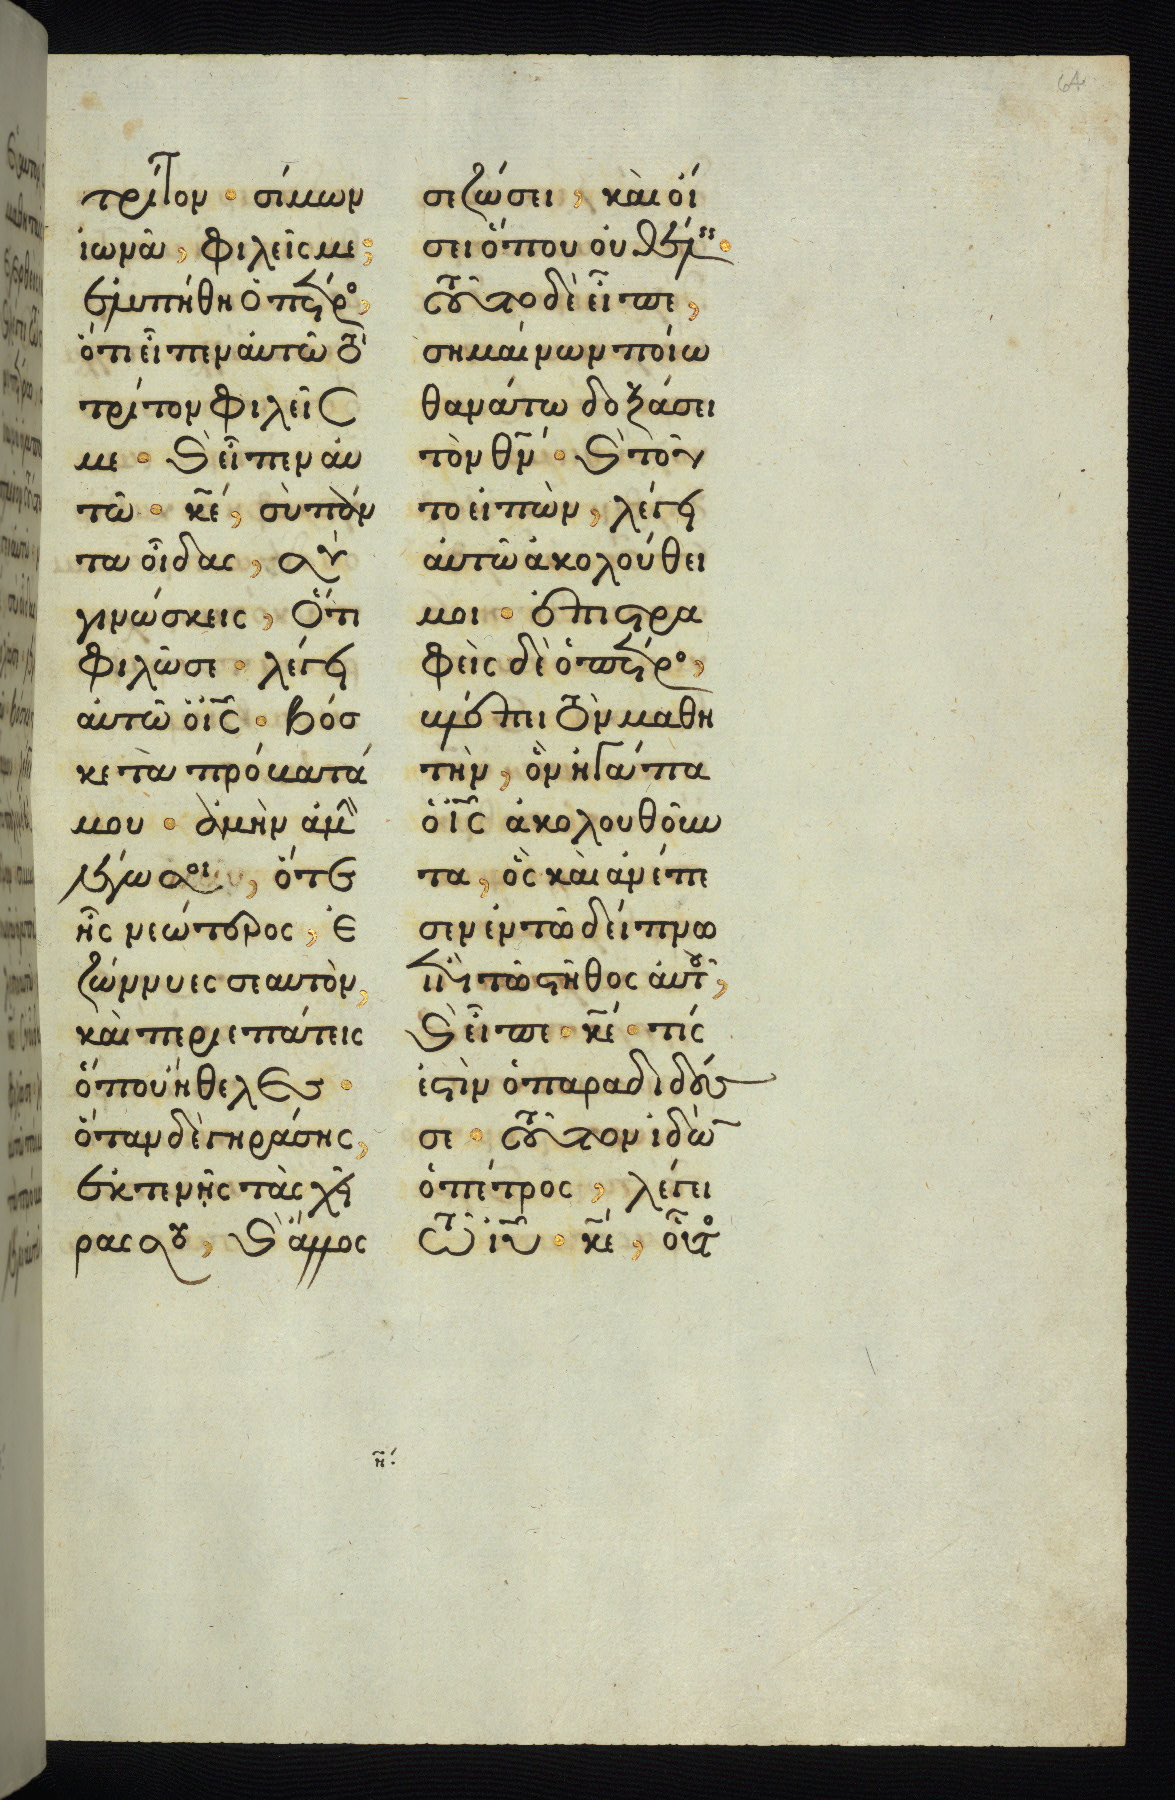 64
τρίτον · σίμων
ἰωνᾶ, φιλεῖς με;
ἐλυπήθη ὁ πέτρο,
ὅτι εἶπεν αὐτῶ τὸ
τρίτον φιλεῖς
με · καὶ εἶπεν αὐ
τῶ · κ̅ε, σὺ πάν
τα οἶδας, σὺ
γινώσκεις, ὅτι
φιλῶ σε · λέγει
αὐτῶ ὁ ι̅ς · βόσ
κε τὰ πρόβατά
μου · ἀμὴν ἀμὴν
λέγω σοι, ὅτε
ἦς νεώτερος, ἐ
ζώννυες σεαυτὸν,
καὶ περιεπάτεις
ὅπου ἤθελες ·
ὅταν δὲ γηράσης,
ἐκτενεῖς τὰς χεῖ
ρας σου, καὶ ἄλλος
σε ζώσει, καὶ οἴ
σει ὅπου οὐ θέλεις ·
τοῦτο δὲ εἶπε,
σημαίνων ποίω
θανάτω δοξάσει
τὸν θ̅ν · καὶ τοῦ
το εἰπὼν, λέγει
αὐτῶ ἀκολούθει
μοι · ἐπιστρα
φεὶς δὲ ὁ πέτρο,
βλέπει τὸν μαθη
τὴν, ὃν ἠγάπα
ὁ ι̅ς ἀκολουθοῦν
τα, ὃς καὶ ἀνέπε
σεν ἐν τῶ δείπνω
ἐπὶ τὸ στῆθος αὐτοῦ,
καὶ εἶπε · κ̅ε · τίς
ἐστιν ὁ παραδιδούς
σε · τοῦτον ἰδὼν
ὁ πέτρος, λέγει
τῶ ι̅υ · κ̅ε, οὗτο
η̅ :